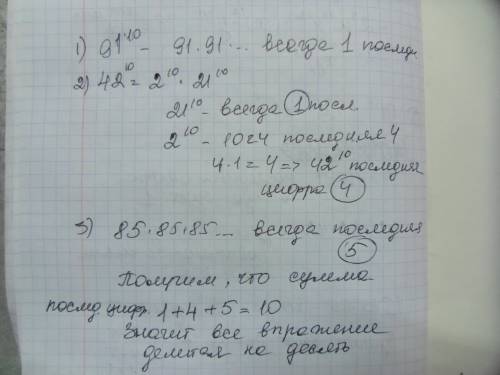 1) 91¹⁰ - 91·91... всегда 1 последн
2) 42¹⁰ = 2¹⁰ · 21¹⁰
21¹⁰ - всегда 1 посл.
2¹⁰ - 1024 последняя 4
4·1 = 4 => 42¹⁰ последняя
цифра 4
3) 85·85·85... всегда последняя
5
Получим, что сумма
послед цифр 1+4+5=10
Значит все выражение
делится на десять